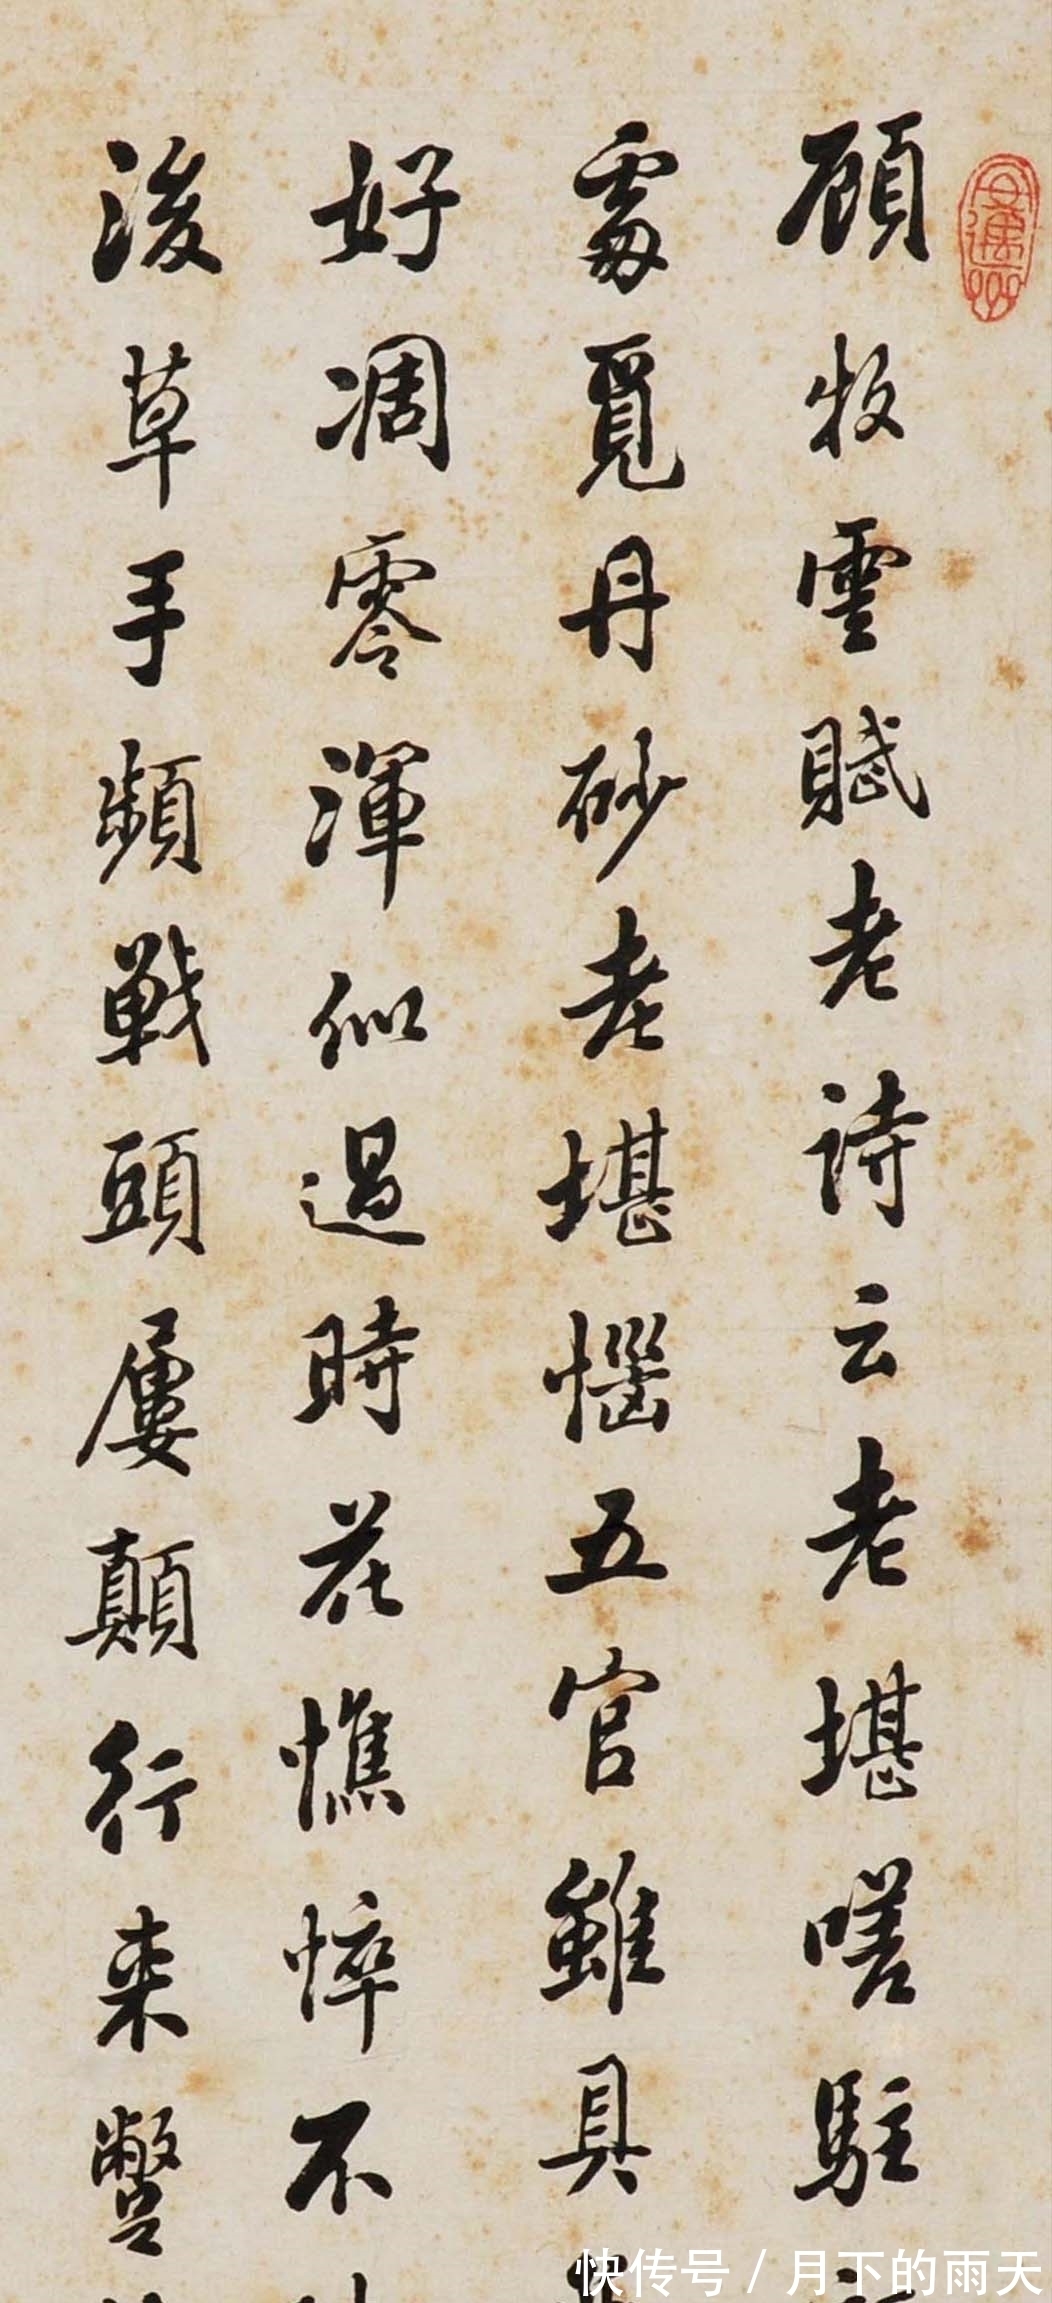 顧牧雲賦老詩云老堪嗟駐
處覓丹砂老堪惱五官雖具
好凋零渾似過時花憔悴不
後草手頻戰頭屢顛行来蹩
快传号/月下的雨天